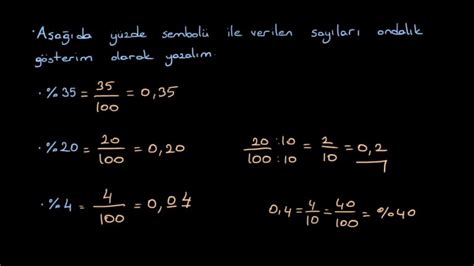 · Aşağıda yüzde sembolü ile verilen sayıları ondalık
gösterim olarak yazalım.
· %35 = 35/100 = 0,35
· %20 = 20/100 = 0,20
20 :10/100 :10 = 2/10 = 0,2
· %4 = 4/100 = 0,04
0,4 = 4/10 = 40/100 = %40